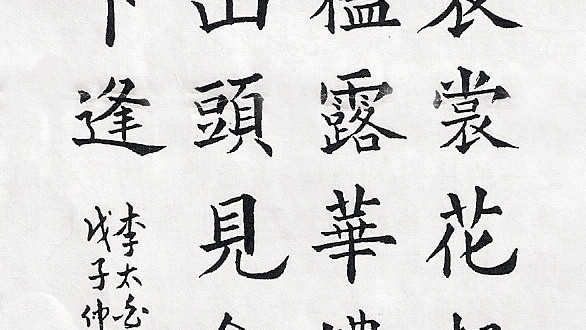 衣裳花
檻露華
山頭見
下逢
李太白
戊子仲